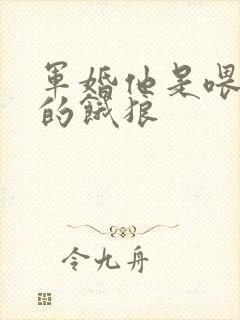 軍婚他是喂
的餓狼
令九舟